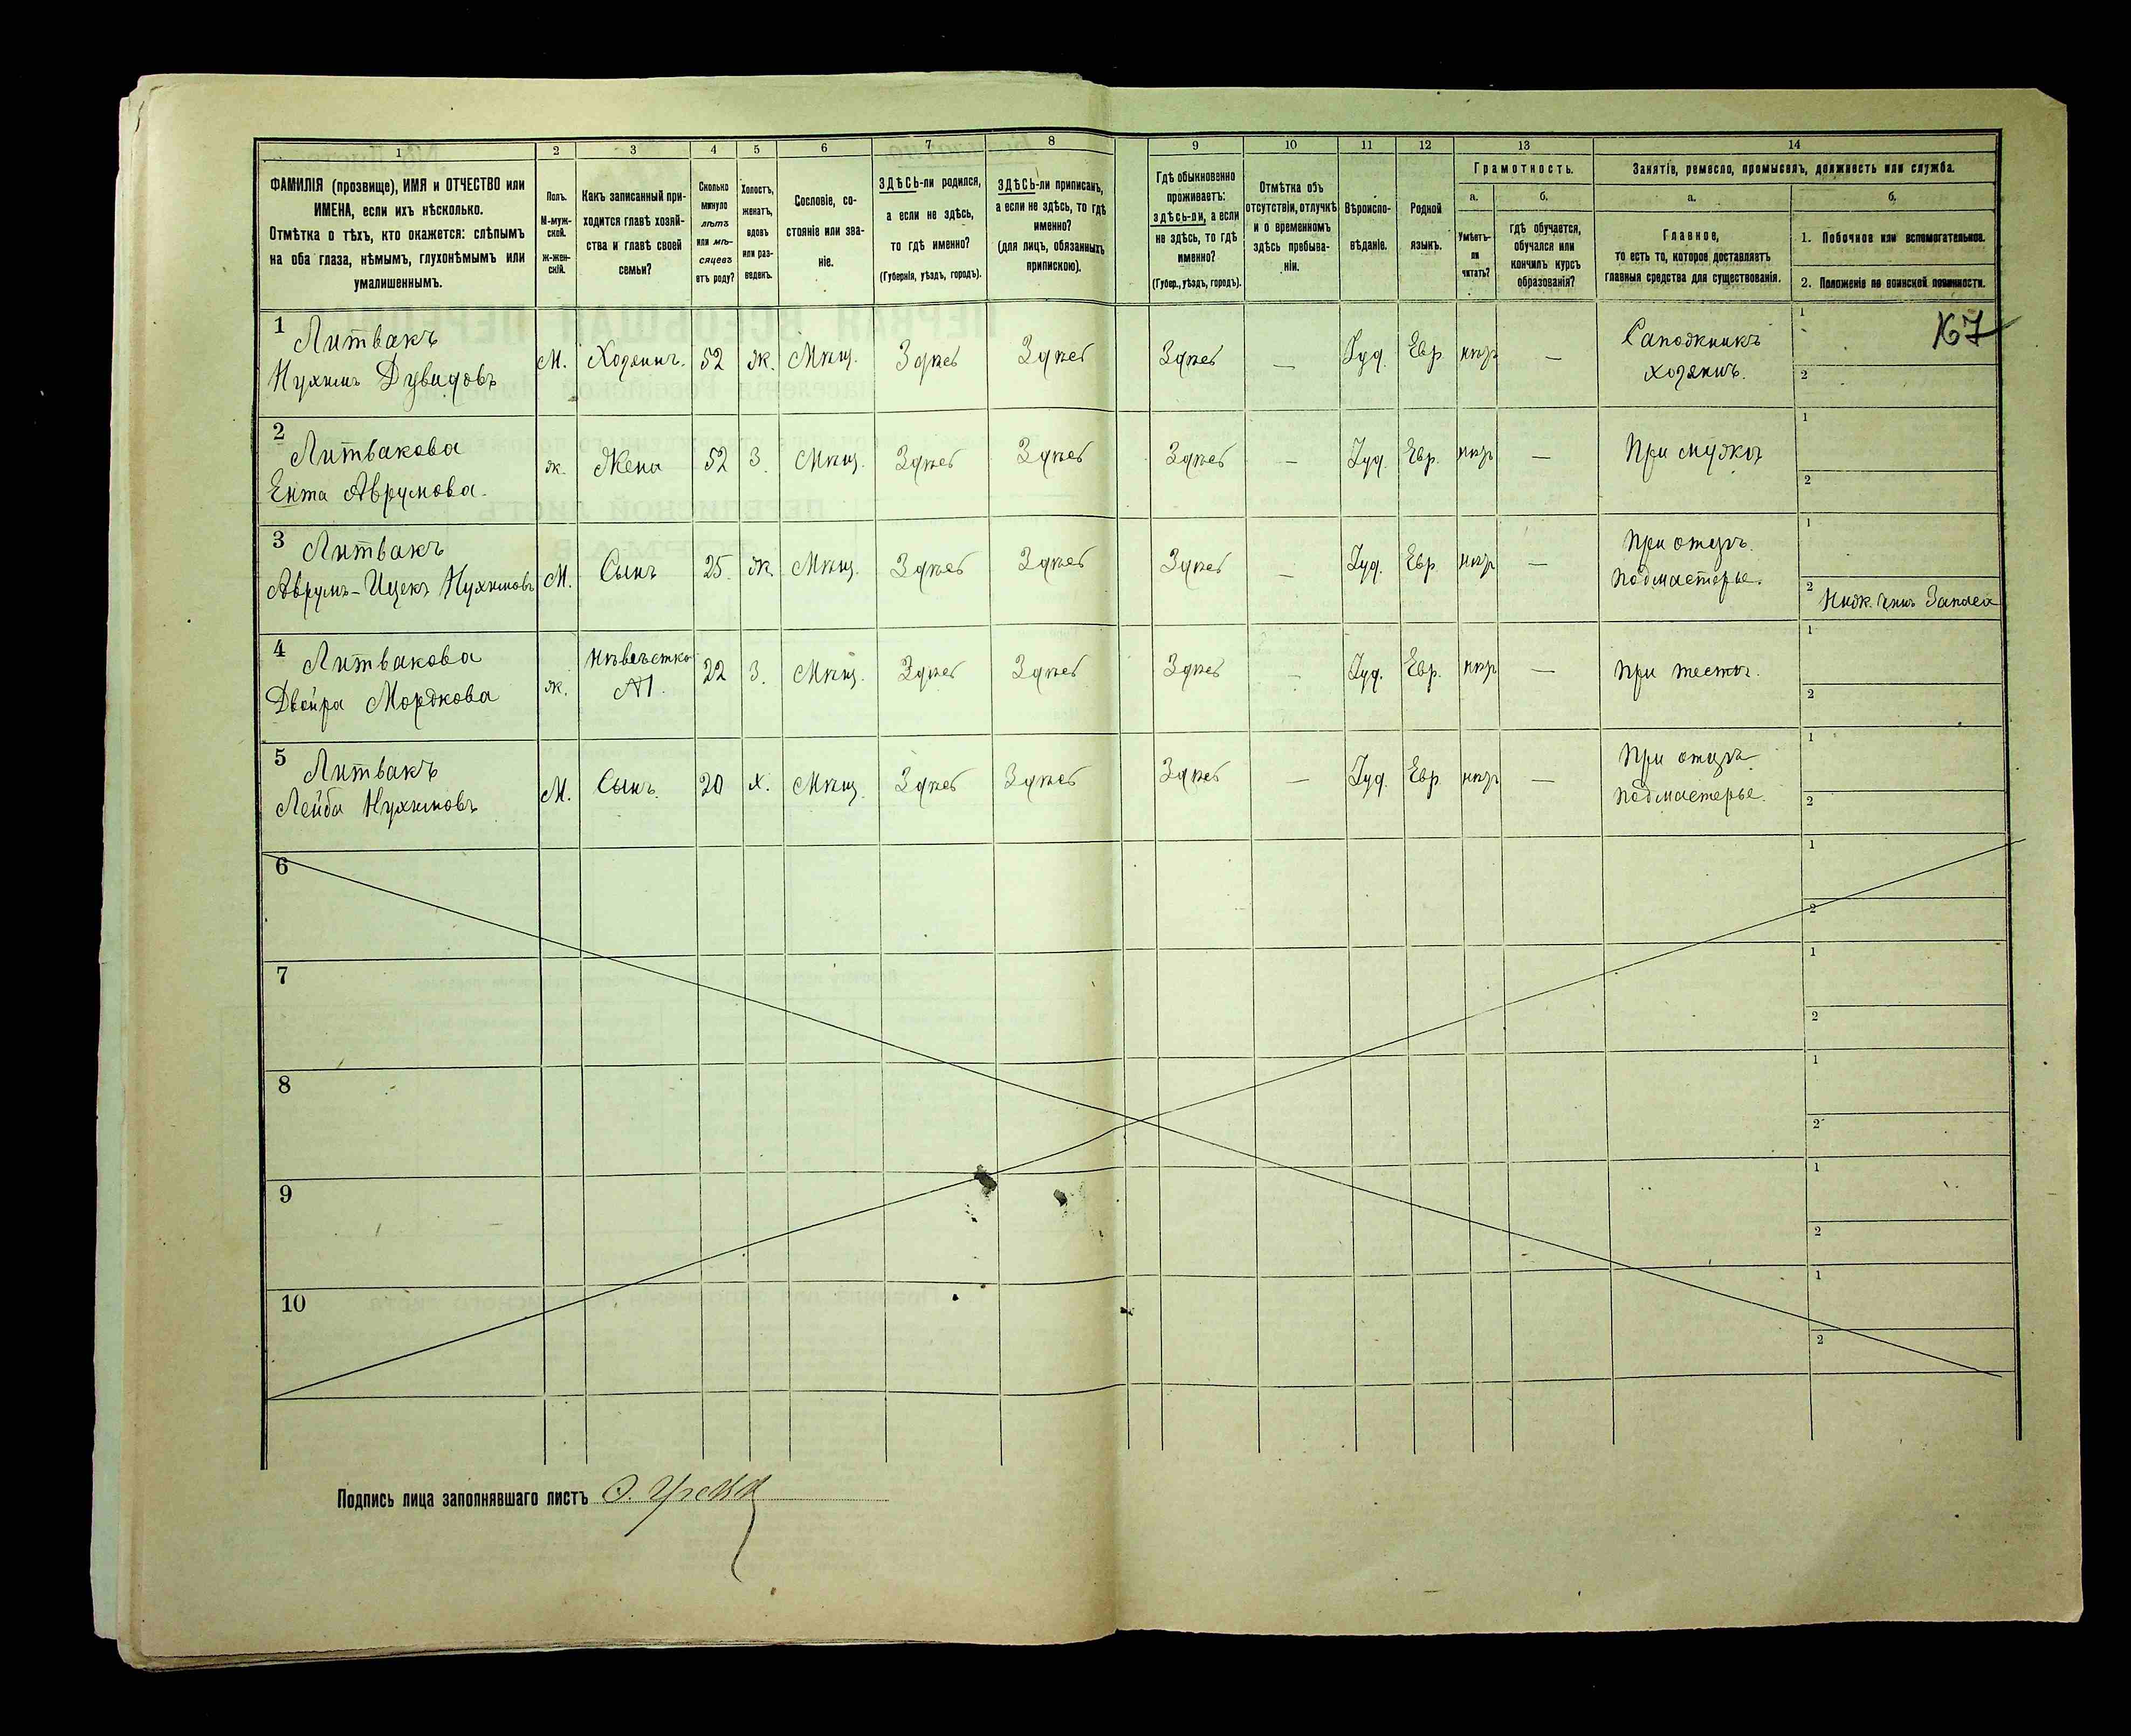 1 2 3 4 5 6 7 8 9 10 11 12 13 14
ФАМИЛІЯ (прозвище), ИМЯ и ОТЧЕСТВО или
ИМЕНА, если ихъ нѣсколько.
Отмѣтка о тѣхъ, кто окажется: слѣпымъ
на оба глаза, нѣмымъ, глухонѣмымъ или
умалишеннымъ.
Полъ.
М-муж-
ской.
ж-жен-
скій.
Какъ записанный при-
ходится главѣ хозяй-
ства и главѣ своей
семьи?
Сколько
минуло
лѣтъ
или мѣ-
сяцевъ
отъ роду?
Холостъ,
женатъ,
вдовъ
или раз-
веденъ.
Сословіе, со-
стояніе или зва-
ніе.
ЗДѢСЬ-ли родился,
а если не здѣсь,
то гдѣ именно?
(Губернія, уѣздъ, городъ).
ЗДѢСЬ-ли приписанъ,
а если не здѣсь, то гдѣ
именно?
(для лицъ, обязанныхъ
припискою).
Гдѣ обыкновенно
проживаетъ:
здѣсь-ли, а если
не здѣсь, то гдѣ
именно?
(Губер., уѣздъ, городъ).
Отмѣтка объ
отсутствіи, отлучкѣ
и о временномъ
здѣсь пребыва-
ніи.
Вѣроиспо-
вѣданіе.
Родной
языкъ.
Грамотность.
а.
Умѣетъ-
ли
читать?
б.
гдѣ обучается,
обучался или
кончилъ курсъ
образованія?
Занятіе, ремесло, промыселъ, должность или служба.
а.
Главное,
то есть то, которое доставляетъ
главныя средства для существованія.
б.
1. Побочное или вспомогательное.
2. Положеніе по воинской повинности.
167
1 Литвакъ
Нухимъ Дувидовъ М. Хозяинъ. 52 ж. Мѣщ. Здѣсь Здѣсь Здѣсь — Іуд. Евр. нѣтъ — Сапожникъ
хозяинъ.
1
2
2 Литвакова
Ента Аврумова. ж. Жена 52 З. Мѣщ. Здѣсь Здѣсь Здѣсь — Іуд. Евр. нѣтъ — При мужѣ
1
2
3 Литвакъ
Аврумъ-Ицекъ Нухимовъ М. Сынъ 25. ж. Мѣщ. Здѣсь Здѣсь Здѣсь — Іуд. Евр. нѣтъ — При отцѣ.
подмастерье.
1
2 Ниж. чинъ Запаса
4 Литвакова
Двойра Мордкова ж. Невѣстка
А1. 22 З. Мѣщ. Здѣсь Здѣсь Здѣсь — Іуд. Евр. нѣтъ — При тестѣ.
1
2
5 Литвакъ
Лейба Нухимовъ М. Сынъ. 20 х. Мѣщ. Здѣсь Здѣсь Здѣсь — Іуд. Евр нѣтъ — При отцѣ
подмастерье.
1
2
6
1
2
7
1
2
8
1
2
9
1
2
10
1
2
Подпись лица заполнявшаго листъ